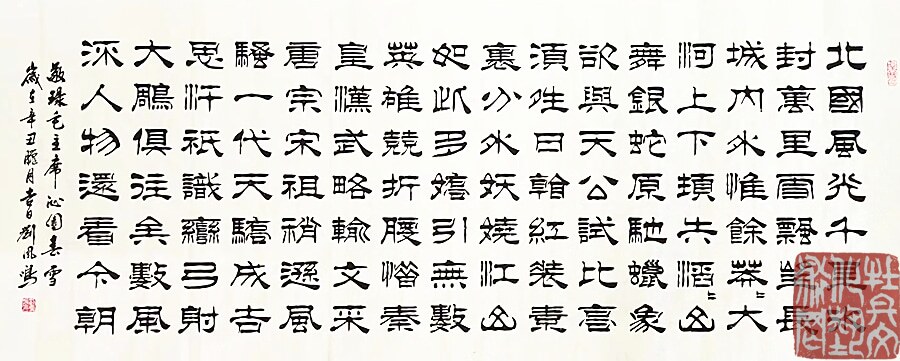 北國風光千里冰
封萬里雪飄望長
城內外惟餘莽〻大
河上下頓失滔〻山
舞銀蛇原馳蠟象
欲與天公試比高
須夝日看紅裝素
裹分外妖嬈江山
如此多嬌引無數
英雄競折腰惜秦
皇漢武略輸文采
唐宗宋祖稍遜風
騷一代天驕成吉
思汗祇識彎弓射
大鵰俱往矣數風
流人物還看今朝
敬錄毛主席沁園春雪
歲在辛丑臘月吉日劉鳳